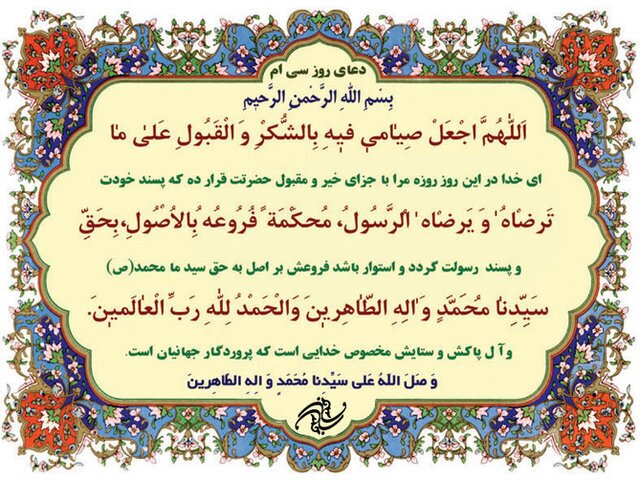 دعای روز سی ام
بِسْمِ اللهِ الرَّحْمنِ الرَّحیمِ
اَللّٰهُمَّ اجْعَلْ صِیٰامي فیهِ بِالشُّکْرِ وَ الْقَبُولِ عَلیٰ مٰا
ای خدا در این روز روزه مرا با جزای خیر و مقبول حضرتت قرار ده که پسند خودت
تَرضٰاهُ وَ یَرضٰاه الرَّسُولُ، مُحکَمَةً فُرُوعُهُ بِالاُصُولِ،بِحَقِّ
و پسند رسولت گردد و استوار باشد فروعش بر اصل به حق سید ما محمد(ص)
سَیِّدِنٰا مُحَمَّدٍ وَ اٰلِهِ الطّٰاهِرینَ وَالْحَمْدُ لِلّٰهِ رَبِّ الْعٰالَمینَ.
و آ ل پاکش و ستایش مخصوص خدایی است که پروردگار جهانیان است.
وَ صَلَ اللهُ عَلی سَیِّدنا مُحَمَدٍ وَ الِهِ الطّاهِرینَ